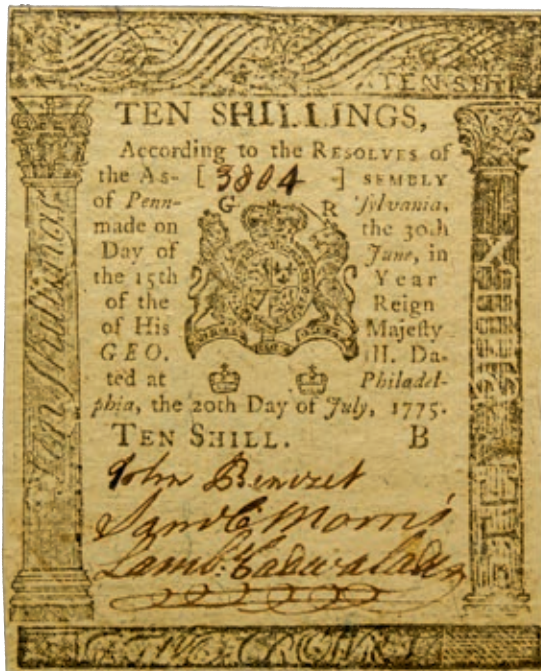 TEN SHIL
TEN SHILLINGS,
According to the RESOLVES of
the As- [ 3804 ] SEMBLY
of Penn- G R sylvania,
made on the 30.h
Day of June, in
the 15th Year
of the Reign
of His Majesty
GEO. III. Da-
ted at Philadel-
phia, the 20th Day of July, 1775.
TEN SHILL. B
John Benezet
Saml. C. Morris
Lamb. Cadwalader
Ten Shillings